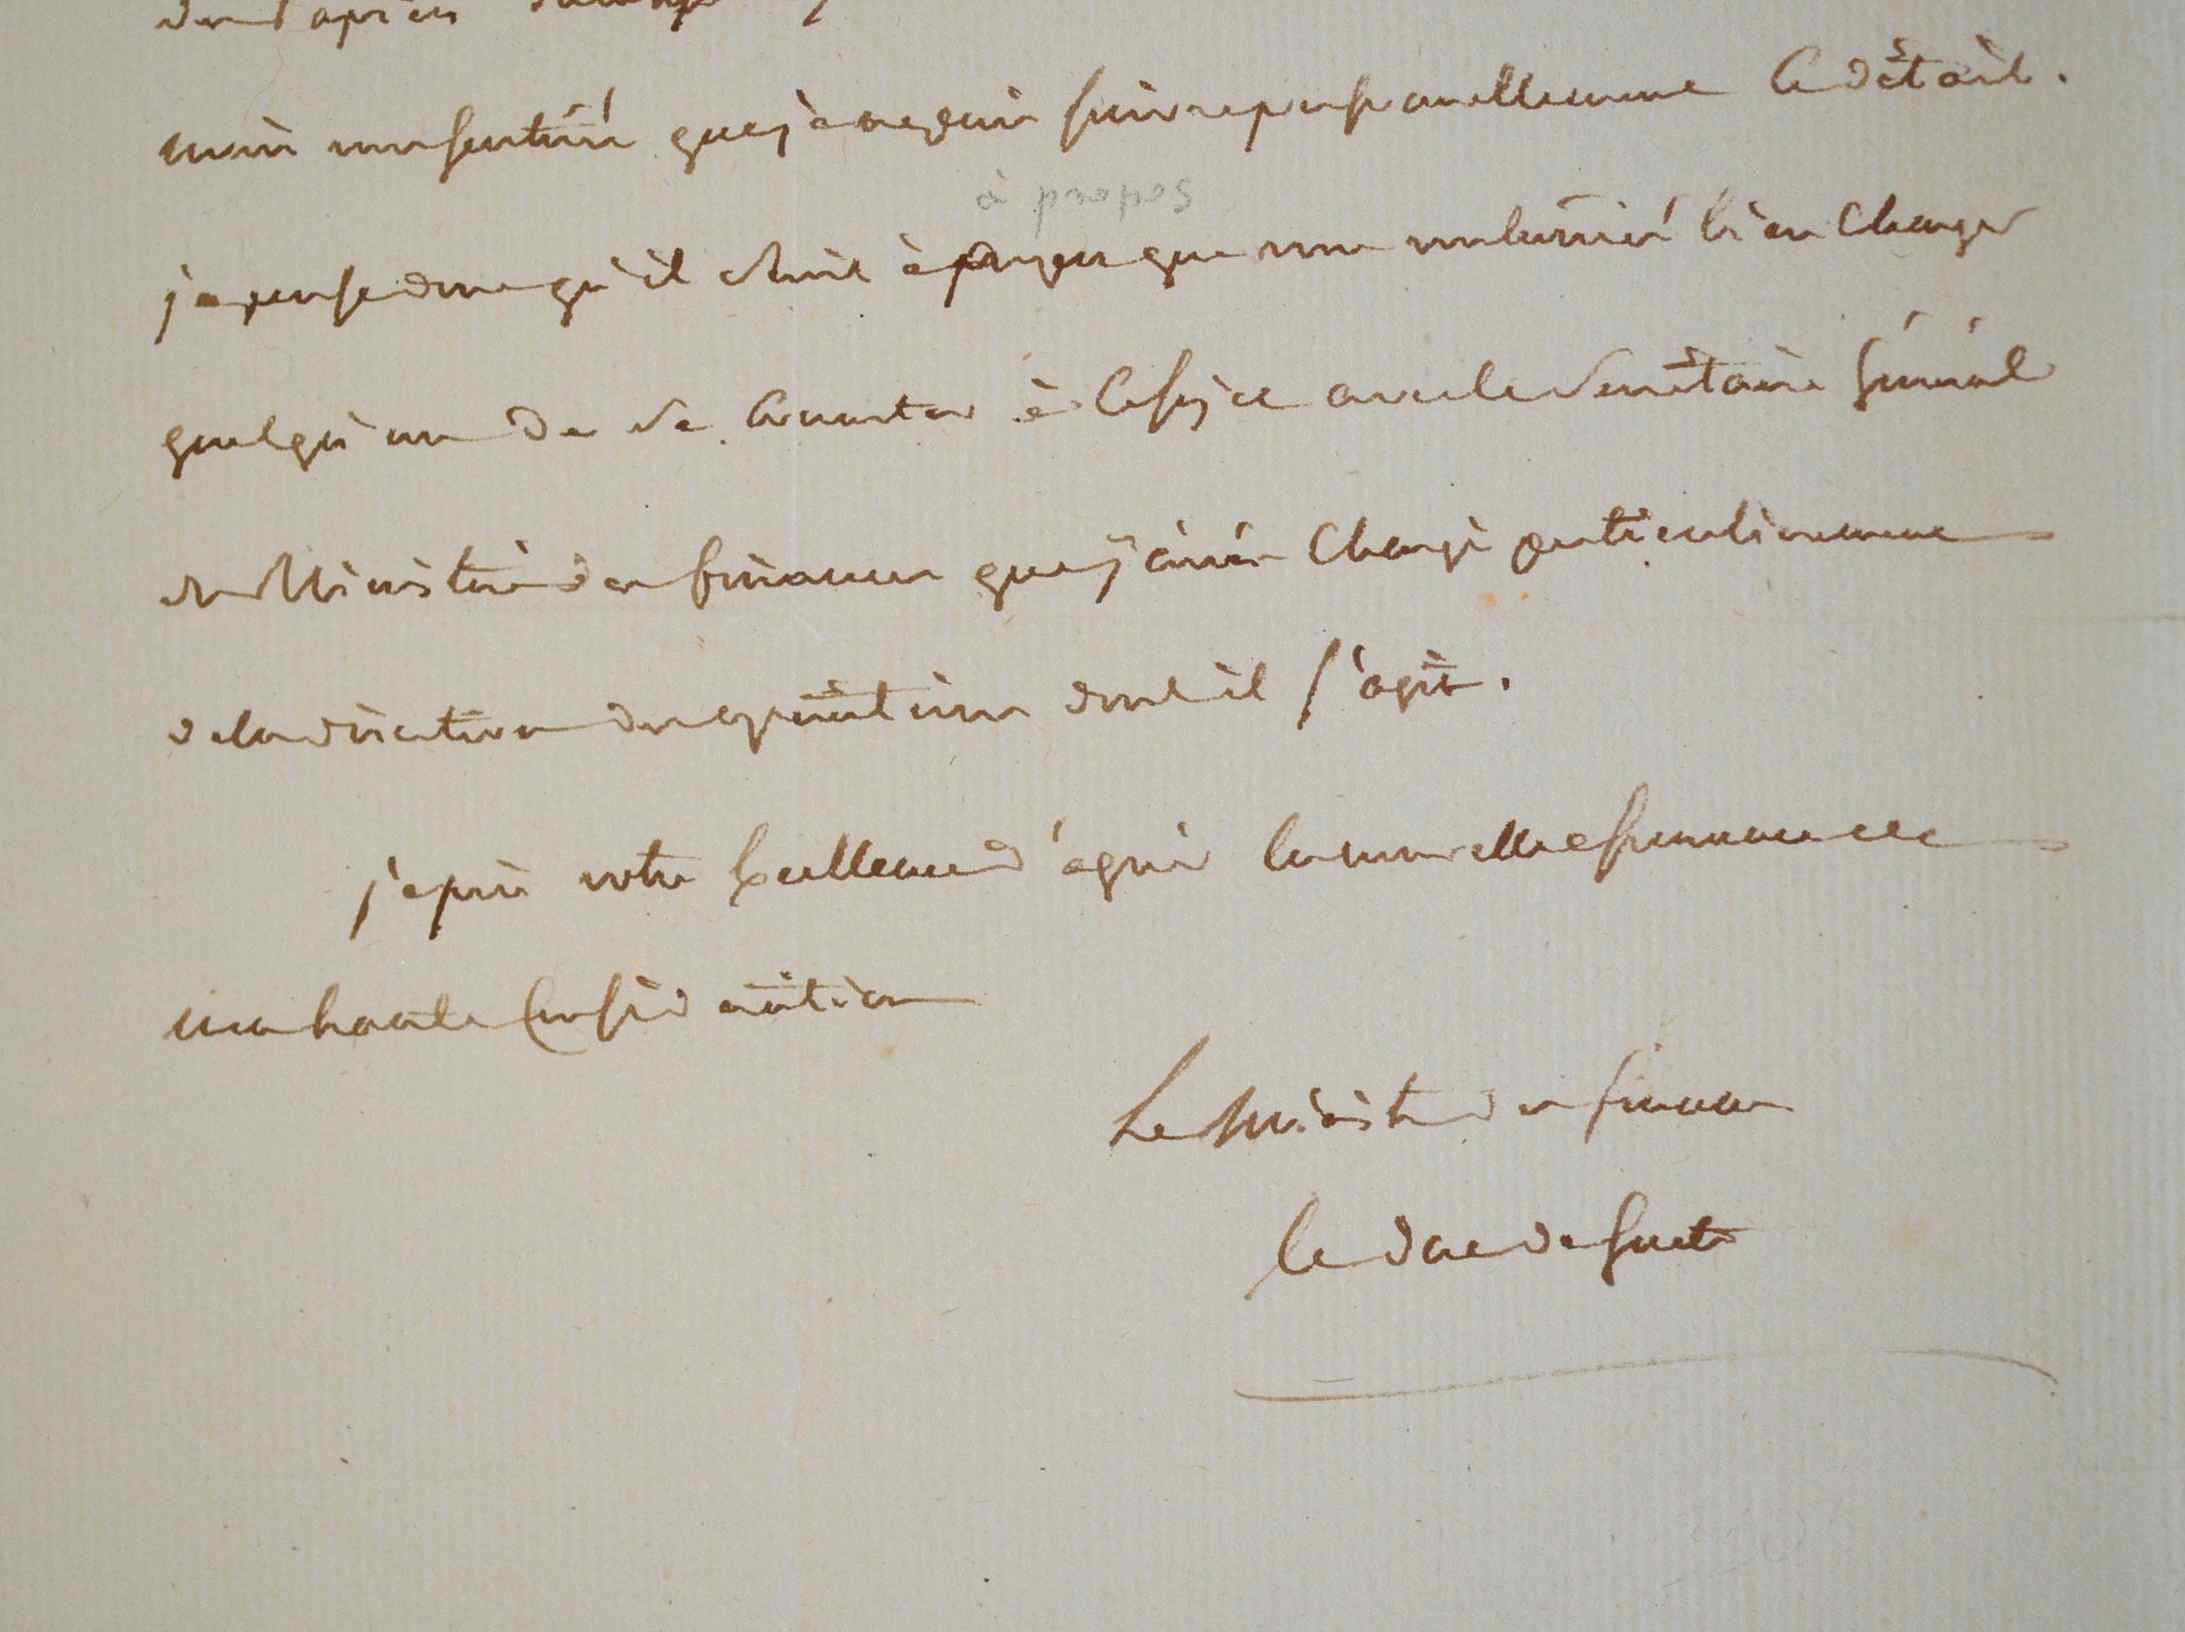 d'après
mais vous sentirés que je ne puis suivre personnellement le détail.
à propos
je pense donc qu'il seroit à propos que vous voulussiés bien charger
quelqu'un de se concerter à ce sujet avec le Secrétaire Général
du Ministère des finances que j'ai chargé particulièrement
de la direction des opérations dont il s'agit.
je prie votre Excellence d'agréer la nouvelle assurance de
ma haute Considération
Le Ministre des finances
le duc de Gaete